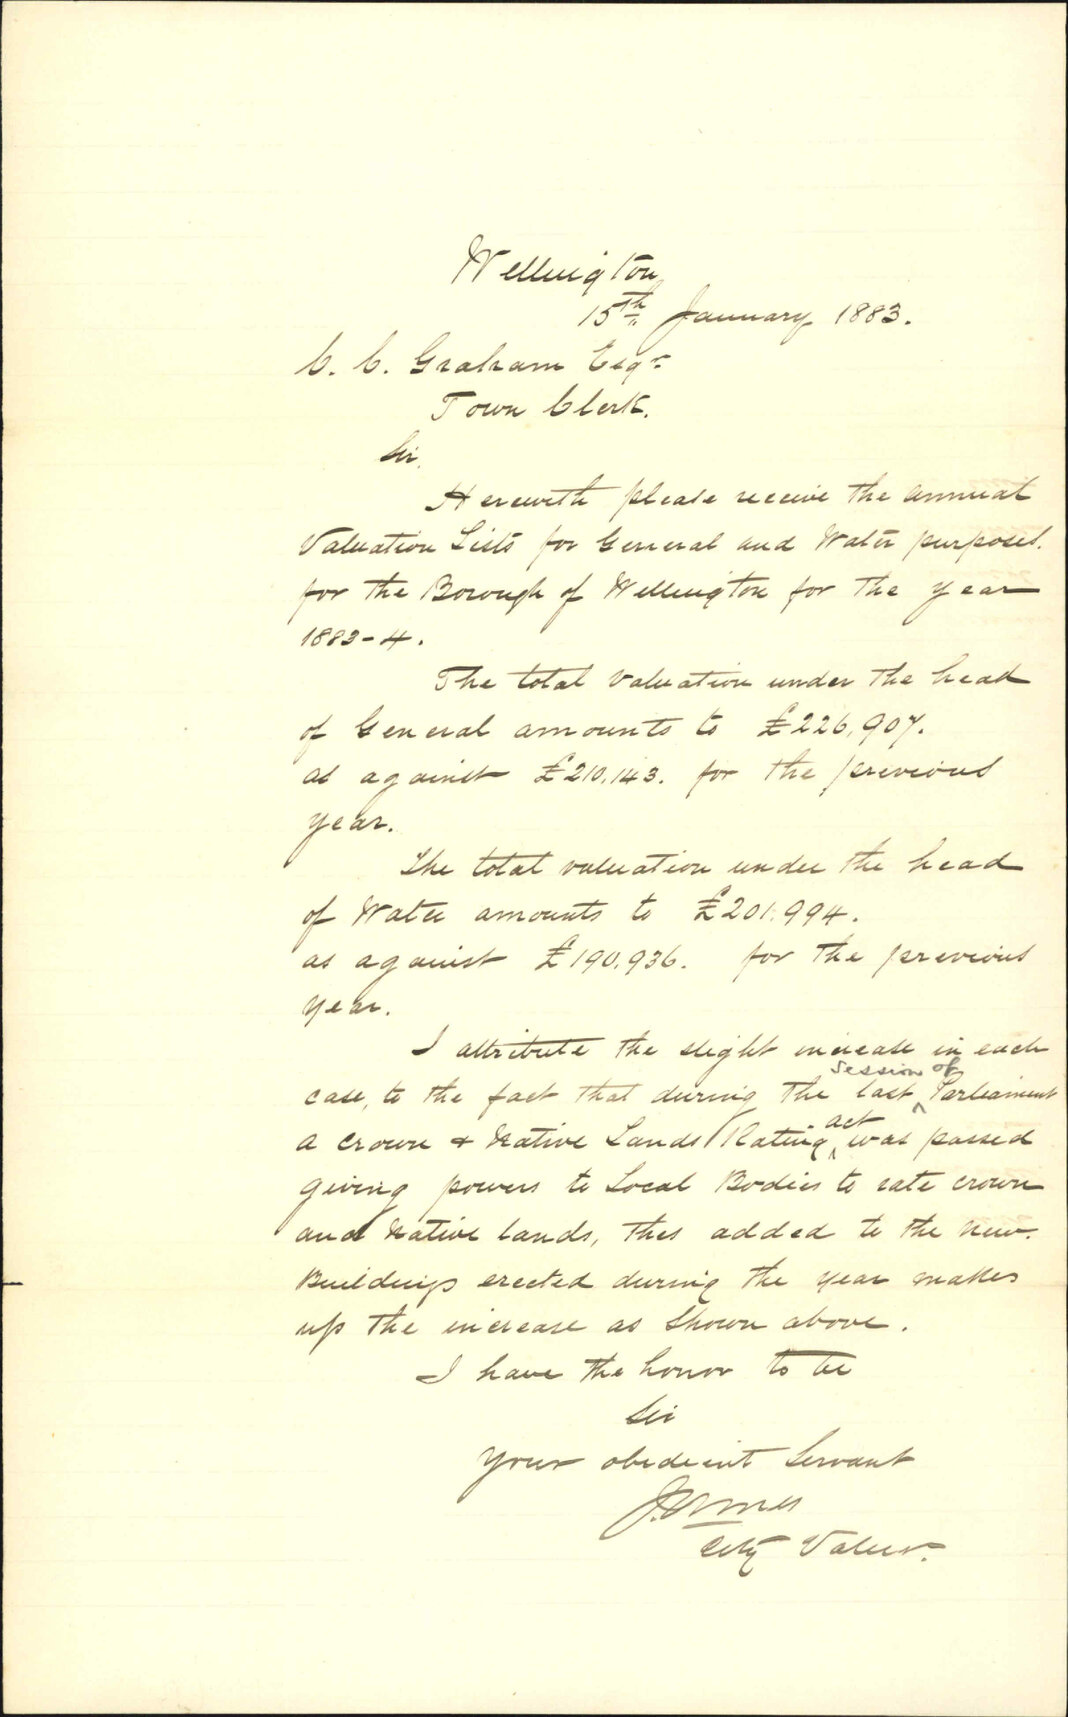 Wellington
15th January 1883.
C. C. Graham Esqr
Town Clerk.
Sir,
Herewith please receive the annual
Valuation Lists for General and Water purposes.
for the Borough of Wellington for the year
1883-4.
The total valuation under the head
of General amounts to £226,907.
as against £210,143. for the previous
year.
The total valuation under the head
of Water amounts to £201,994.
as against £190,936. for the previous
year.
I attribute the slight increase in each
case, to the fact that during the last session of Parliament
a Crown & Native Lands Rating act was passed
giving powers to Local Bodies to rate crown
and Native lands, this added to the new
Buildings erected during the year makes
up the increase as shown above.
I have the honor to be
Sir
Your obedient Servant
City Valuer.